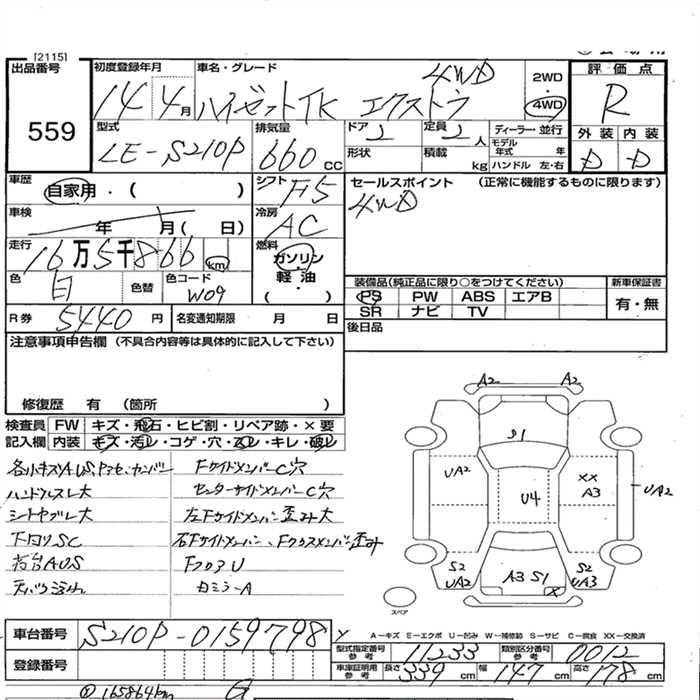 [2115]
出品番号
559
初度登録年月
14 4月
車名・グレード
4WD
ハイゼットTK エクストラ
2WD
・
4WD
評価点
R
型式
LE-S210P
排気量
660cc
ドア 2
定員 2人
ディーラー・並行
モデル年式 年
形状
積載 kg
ハンドル 左・右
外装 内装
D D
車歴
自家用・( )
シフト F5
セールスポイント (正常に機能するものに限ります)
4WD
車検
年 月( 日)
冷房 AC
走行
16万5千866km
燃料
ガソリン
軽・油
( )
色
白
色替
色コード
W09
装備品(純正品に限り○をつけてください)
新車保証書
PS PW ABS エアB
SR ナビ TV
有・無
R券 5440円
名変通知期限 月 日
後日品
注意事項申告欄 (不具合内容等は具体的に記入して下さい)
修復歴 有 (箇所 )
検査員 FW キズ・飛石・ヒビ割・リペア跡・×要
記入欄 内装 キズ・汚レ・コゲ・穴・スレ・キレ・破レ
各小キズAUS、
ハンドルスレ大
シートヤブレ大
下回リSC
荷台AUS
Fサイドメンバー C穴
センターサイドメンバー C穴
左Fサイドメンバー歪み大
右Fサイドメンバー、Fクロスメンバー歪み
FフロアU
白ミラーA
A2 A2
S1
UA2
U4
XX
A3
UA2
S2
UA2
A3 S1
S2
UA3
X
スペア
A-キズ E-エクボ U-凹み W-補修跡 S-サビ C-腐食 XX-交換済
車台番号 S210P-0159798
型式指定番号 参考 11233
類別区分番号 参考 0012
登録番号
車庫証明用 参考 長さ 339cm 幅 147cm 高さ 178cm
① 165864km